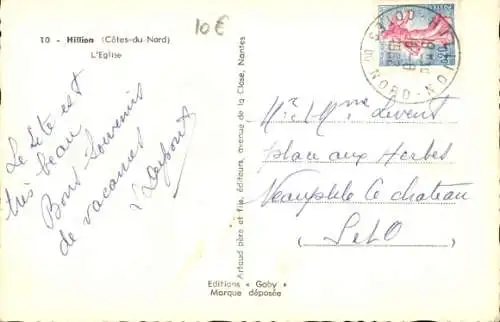 10 - Hillion (Côtes-du-Nord)
L'Eglise
10€
Le Site est
très beau
Bons Souvenirs
de vacances
Artaud père et fils, éditeurs, avenue de la Close, Nantes
Editions « Gaby »
Marque déposée
POSTES
0,20
NORD
Mr Mme Levent
place aux Herbes
Neauphle le chateau
S et O